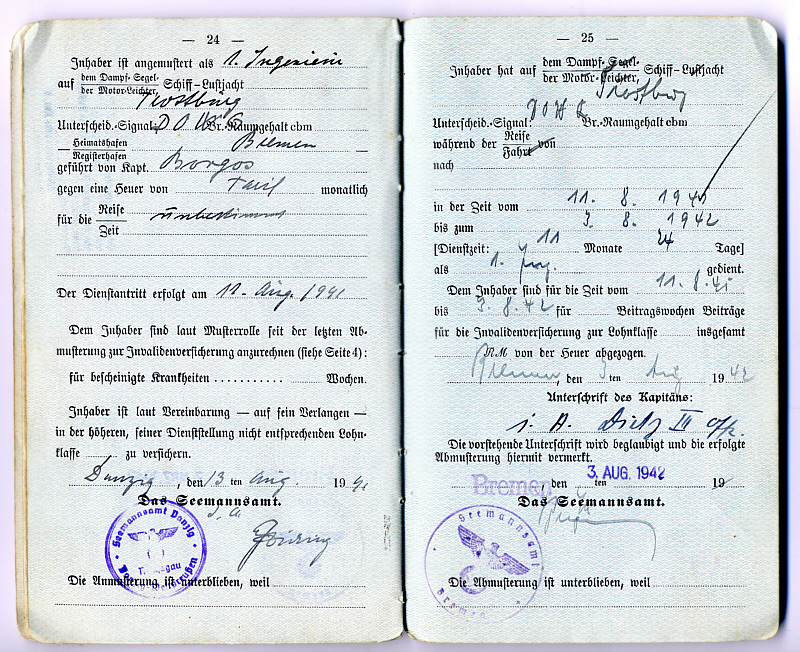 — 24 —
Inhaber ist angemustert als 1. Ingenieur
auf dem Dampf- Segel-
der Motor-Leichter, Schiff-Lustjacht
Trostburg
Unterscheid.-Signal: D O Br.-Raumgehalt cbm
Heimatshafen Bremen
Registerhafen
geführt von Kapt. Borgos
gegen eine Heuer von Tarif monatlich
für die Reise unbestimmt
Zeit
Der Dienstantritt erfolgt am 11. Aug. 1941
Dem Inhaber sind laut Musterrolle seit der letzten Ab-
musterung zur Invalidenversicherung anzurechnen (siehe Seite 4):
für bescheinigte Krankheiten ........... Wochen.
Inhaber ist laut Vereinbarung — auf sein Verlangen —
in der höheren, seiner Dienststellung nicht entsprechenden Lohn-
klasse zu versichern.
Danzig, den 13 ten Aug. 1941
Das Seemannsamt.
I. A.
Seemannsamt Danzig
Die Anmusterung ist unterblieben, weil
— 25 —
Inhaber hat auf dem Dampf- Segel-
der Motor-Leichter, Schiff-Lustjacht
Trostburg
Unterscheid.-Signal: Br.-Raumgehalt cbm
während der Reise von
Fahrt
nach
in der Zeit vom 11. 8. 1941
bis zum 3. 8. 1942
[Dienstzeit: 11 Monate 24 Tage]
als 1. Ing. gedient.
Dem Inhaber sind für die Zeit vom 11. 8. 41
bis 3. 8. 42 für Beitragswochen Beiträge
für die Invalidenversicherung zur Lohnklasse insgesamt
RM von der Heuer abgezogen.
Bremen, den 3 ten Aug 1942
Unterschrift des Kapitäns:
i. A. Dietz III Offz.
Die vorstehende Unterschrift wird beglaubigt und die erfolgte
Abmusterung hiermit vermerkt.
Bremen den 3. AUG. 1942 ten 19
Das Seemannsamt.
Seemannsamt
Bremen
Die Abmusterung ist unterblieben, weil